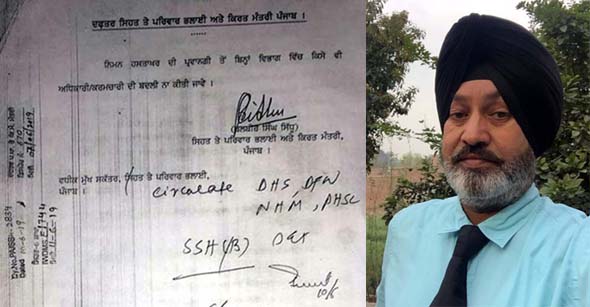 ਦਫ਼ਤਰ ਸਿਹਤ ਤੇ ਪਰਿਵਾਰ ਭਲਾਈ ਅਤੇ ਕਿਰਤ ਮੰਤਰੀ ਪੰਜਾਬ ।
ਨਿਮਨ ਹਸਤਾਖਰ ਦੀ ਪ੍ਰਵਾਨਗੀ ਤੋਂ ਬਿਨ੍ਹਾਂ ਵਿਭਾਗ ਵਿੱਚ ਕਿਸੇ ਵੀ
ਅਧਿਕਾਰੀ/ਕਰਮਚਾਰੀ ਦੀ ਬਦਲੀ ਨਾ ਕੀਤੀ ਜਾਵੇ ।
(ਬਲਬੀਰ ਸਿੰਘ ਸਿੱਧੂ)
ਸਿਹਤ ਤੇ ਪਰਿਵਾਰ ਭਲਾਈ ਅਤੇ ਕਿਰਤ ਮੰਤਰੀ,
ਪੰਜਾਬ ।
ਵਧੀਕ ਮੁੱਖ ਸਕੱਤਰ, ਸਿਹਤ ਤੇ ਪਰਿਵਾਰ ਭਲਾਈ,
ਪੰਜਾਬ ।
Circulate DHS, DFW
NHM, PHSC
SSH
10/6
Dy.No.PA/SS 2839
Dated 10-6-19
11-6-19